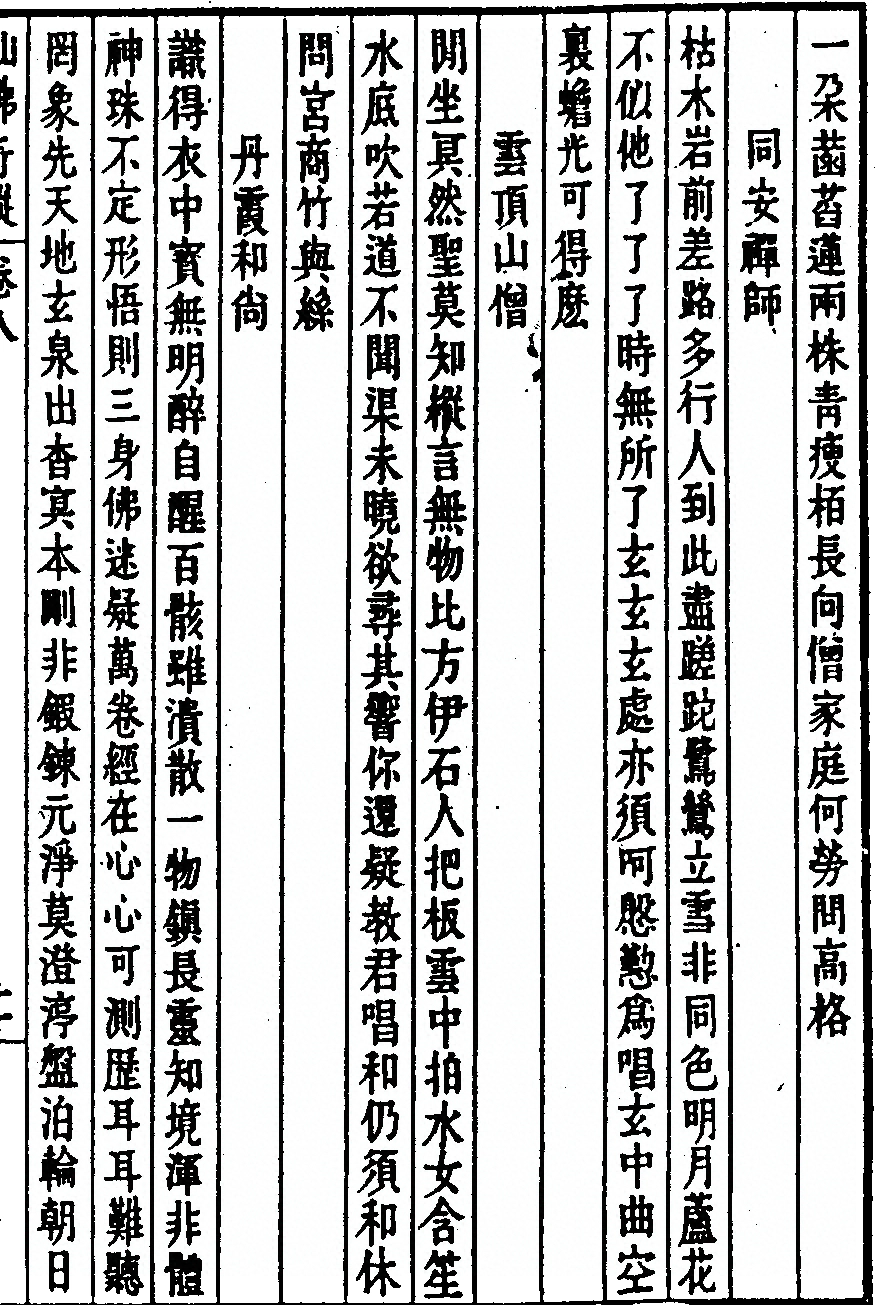 一朶菡萏蓮兩株靑瘦栢長向僧家庭何勞問高格
同安禪師
枯木岩前差路多行人到此盡蹉跎鷺鷥立雪非同色明月蘆花
不似他了了了時無所了玄玄玄處亦須呵慇懃爲唱玄中曲空
裏蟾光可得麽
雲頂山僧
閒坐冥然聖莫知縱言無物比方伊石人把板雲中拍水女含笙
水底吹若道不聞渠未曉欲尋其響你還疑教君唱和仍須和休
問宮商竹與絲
丹霞和尙
識得衣中寳無明醉自醒百骸雖潰散一物鎭長靈知境渾非體
神珠不定形悟則三身佛迷疑萬卷經在心心可測歷耳耳難聽
罔象先天地玄泉出杳冥本剛非鍜鍊元淨莫澄渟盤泊輪朝日